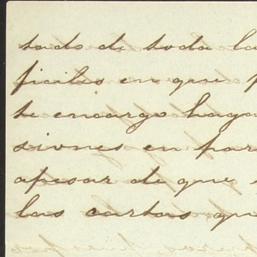 tado de toda la
ficiles en que p
te encargo haga
siones en par
apesar de que
las cartas qu